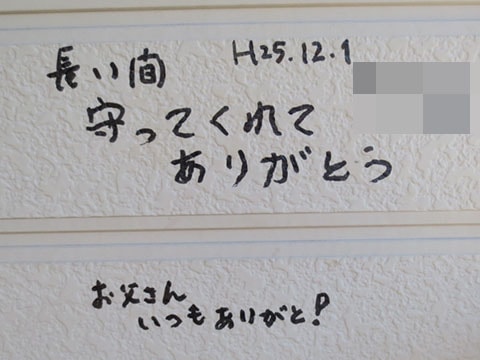 H25.12.1
長い間
守ってくれて
ありがとう
お父さん
いつもありがと!